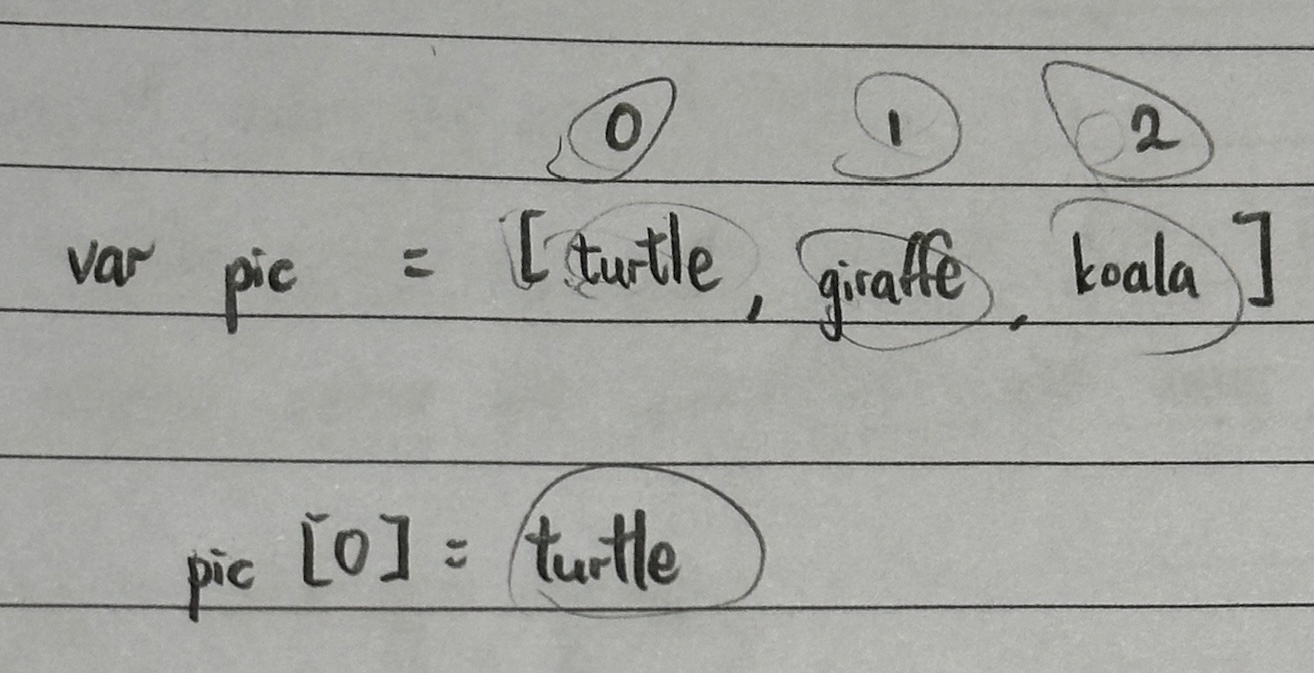 0 1 2
var pic = [turtle, giraffe, koala]
pic [0] = turtle